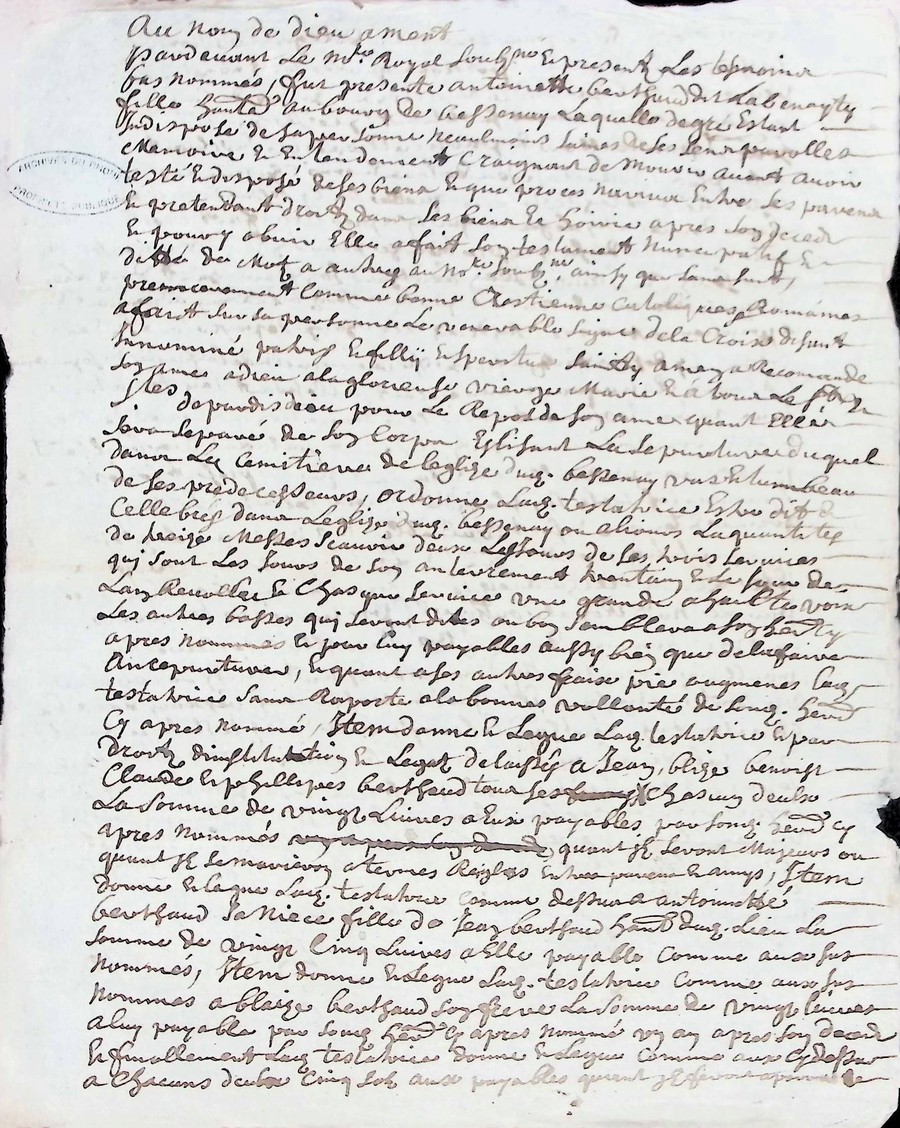 Au nom de dieu ament
pardevant Le no.re Royal soubz.né Et present Les tesmoins
bas nommés, fut presente antoinette berthaud dit Labenayty
fille hante au bourg de bessenay Laquelle de gré Estant
Indispose de sa personne neaulmoins saine de ses sens parolles
Memoire Et Entendement Craignant de Mourir avant avoir
testé Et disposé de ses biens Et que proces naveux Entre ses parens
Et pretendant droitz dans ses biens Et hoirie apres son deced
Et pour y obvir Elle a fait son testament Nuncupatif Et
ditté de Mot a autre au No.re soubz.né ainsy que sans suit,
premierement Comme bonne Chrestienne Catolicques Romaines
a fait sur sa personne Le venerable signe de la Croix disant
In nominé patris Et filly Et speritus santy amen a Recomande
son ames a dieu a la glorieuse vierge Marie Et a tous Le
stes de paradis dieu pour Le Repos de son ame quant Elle
sera separé de son Corps Eslisant La sepulture duquel
dans Le Cemitiere de leglize dud. bessenay vas Et tumbeau
de ses predecesseurs, ordonne Lad. testatrice Estre dit Et
Cellebres dans Leglize dud. bessenay ou alieurs La quantites
de treize Messes scavoir deux Les Jours de ses trois services
qui sont Les Jours de son anterrement trentain Et Le Jour de
Lan Revollu Et Chasque service une grande a haulte voix
Les autres basses qui seront dites ou bon semblera a son herty
apres nommés Et par luy payables aussy bien que de la faire
Ansepulturer, Et quant a ses autres fraix pie augmenes lad.
testatrice sans Raporte a la bonnes vollonté de sond. herd
Cy apres nommé, Item donne Et Legue Lad. testatrice Et par
droitz dinstitution Et Legat delaissés a Jean, blize benoist
Claude Et phillipes berthaud tous ses Chascun deulx
La somme de vingt Livres a Eux payables par sond. herd Cy
apres nommés quant Ilz seront Majeurs ou
quant Ilz se marieron a termes Reigles Entre parens Et amys, Item
donne Et legue Lad. testatrice comme dessus a antoinette
berthaud sa Niece fille de Jean berthaud hant dud. Lieu La
somme de vingt Cinq Livres a Elle payable Comme aux sus
Nommés, Item donne Et Legue Lad. testatrice Comme aux sus
Nommes a blaize berthaud son frere La somme de vingt livres
a luy payable par sond. herd Cy apres nommé un an apres son deced
Et finallement Lad. testatrice donne Et Legue Comme aux Cy dessus
a Chacuns deulx Cinq solz aux payables quant Ilz
ARCHIVES DU RHONE
PROPRIETE PUBLIQUE